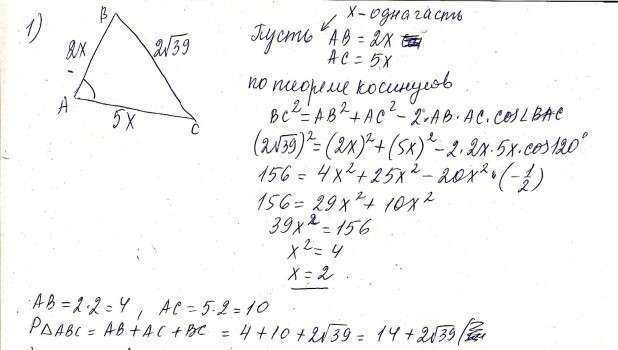 1)
B
2x
2√39
A
5x
C
x - одна часть
Пусть AB = 2x
AC = 5x
по теореме косинусов
BC² = AB² + AC² - 2·AB·AC·cos∠BAC
(2√39)² = (2x)² + (5x)² - 2·2x·5x·cos120°
156 = 4x² + 25x² - 20x²·(-1/2)
156 = 29x² + 10x²
39x² = 156
x² = 4
x = 2
AB = 2·2 = 4, AC = 5·2 = 10
P△ABC = AB + AC + BC = 4 + 10 + 2√39 = 14 + 2√39